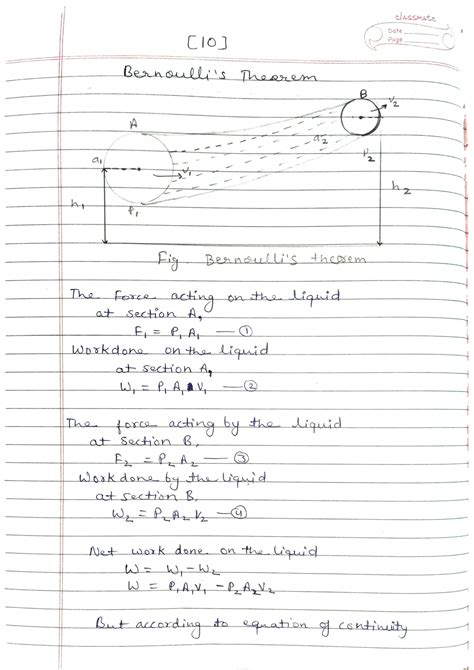 classmate
Date
Page
[10]
Bernoulli's Theorem
B
v₂
A
a₂
a₁
v₁
P₂
h₁
h₂
P₁
Fig. Bernoulli's theorem
The Force acting on the liquid
at section A,
F₁ = P₁A₁ — ①
Workdone on the liquid
at section A,
W₁ = P₁A₁V₁ — ②
The force acting by the liquid
at section B,
F₂ = P₂A₂ — ③
Work done by the liquid
at section B,
W₂ = P₂A₂V₂ — ④
Net work done on the liquid
W = W₁ - W₂
W = P₁A₁V₁ - P₂A₂V₂
But according to equation of continuity